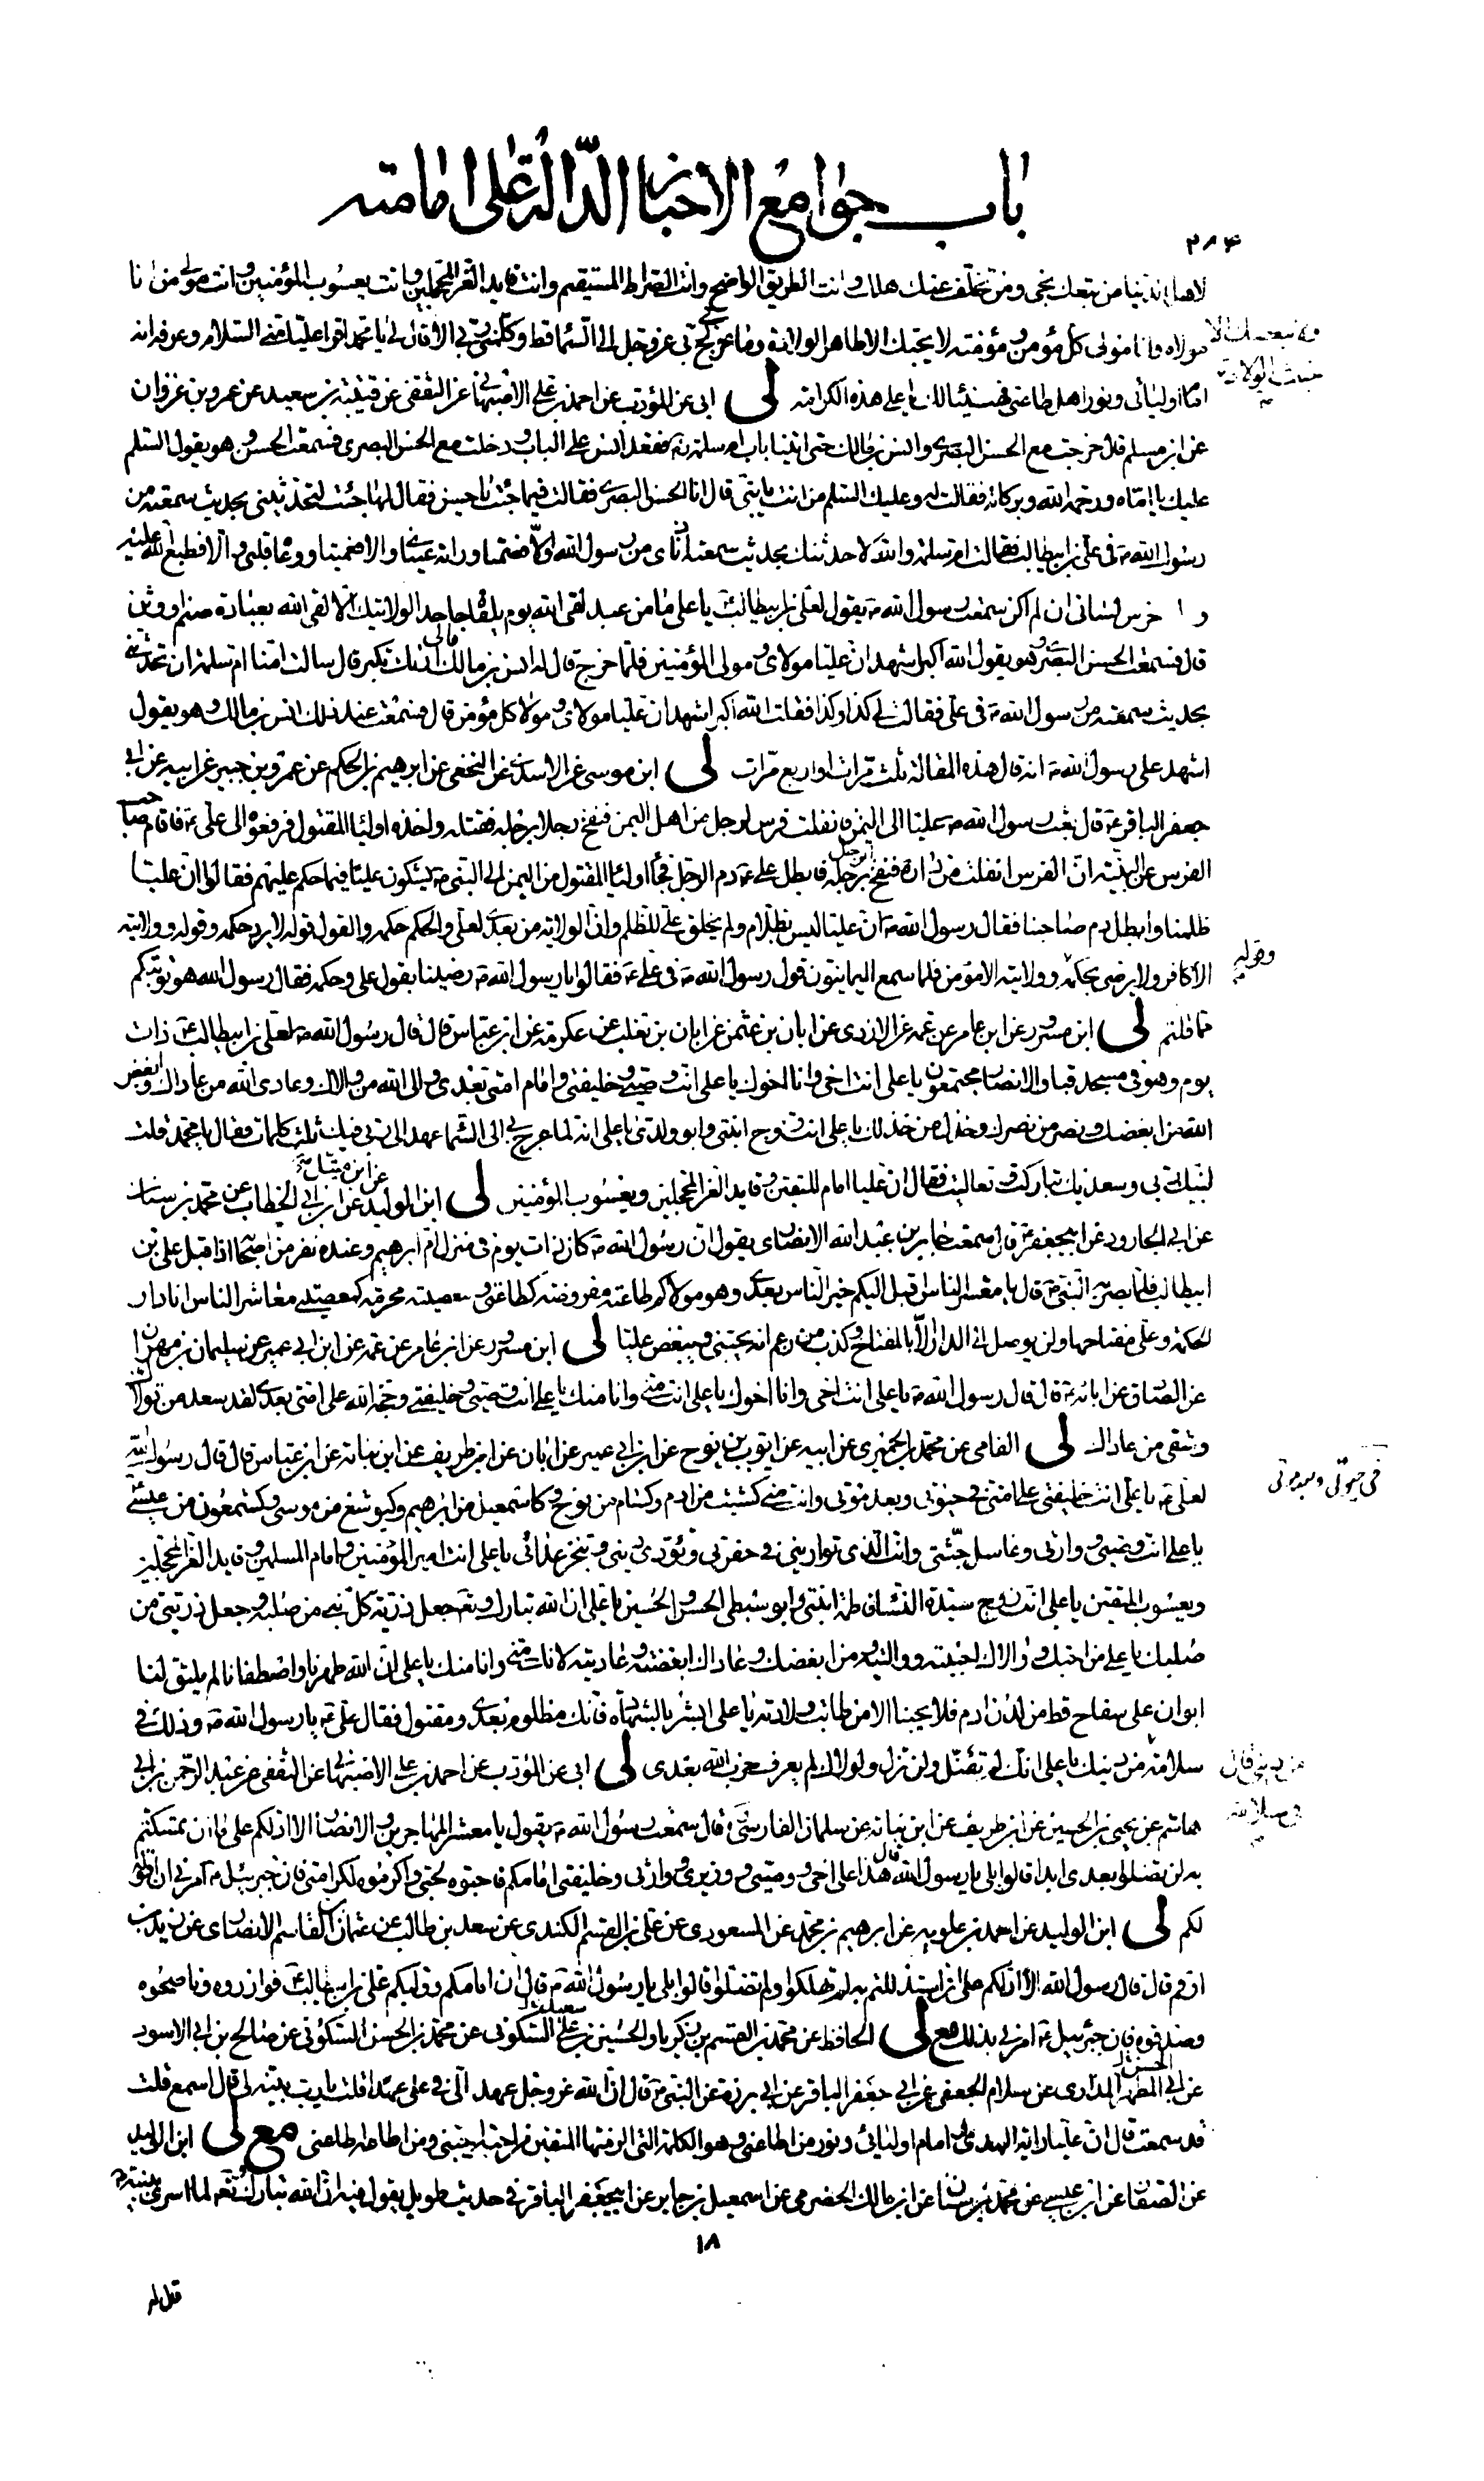 باب جوامع الاخبار الدالة على امامته
٢٨٤
لاهل الدنيا من تبعك نجى ومن تخلف عنك هلك وانت الطريق الواضح وانت الصراط المستقيم وانت قايد الغر المحجلين وانت يعسوب المؤمنين وانت مولى من انا
مولاه وانا مولى كل مؤمن ومؤمنة لا يحبك الا طاهر الولادة وما عرج بي ربي عز وجل الى السماء قط وكلمني ربي الا قال لي يا محمد اقرا عليا مني السلام وعرفه انه
امام اوليائي ونور اهل طاعتي فهنيئا لك يا علي هذه الكرامة لى ابي عن المؤدب عن احمد بن علي الاصبهاني عن الثقفي عن قتيبة بن سعيد عن عمرو بن غزوان
عن ابن مسلم قال خرجت مع الحسن البصري وانس بن مالك حتى اتينا باب ام سلمة رض فقعد انس على الباب ودخلت مع الحسن البصري فسمعت الحسن وهو يقول السلم
عليك يا اماه ورحمة الله وبركاته فقالت له وعليك السلم من انت يا بني قال انا الحسن البصري فقالت فيما جئت يا حسن فقال لها جئت لتحدثيني بحديث سمعته من
رسول الله ص في علي بن ابيطالب فقالت ام سلمة والله لاحدثنك بحديث سمعته اذناي من رسول الله والا فصمتا وراته عيناي والا فعميتا ووعاه قلبي والا فطبع الله عليه
وا خرس لساني ان لم اكن سمعت رسول الله ص يقول لعلي بن ابيطالب ع يا علي ما من عبد لقى الله يوم يلقاه جاحدا لولايتك الا لقى الله بعبادة صنم او وثن
قال فسمعت الحسن البصري وهو يقول الله اكبر اشهد ان عليا مولاي ومولى المؤمنين فلما خرج قال له انس بن مالك مالي اراك تكبر قال سالت امنا ام سلمة ان تحدثني
بحديث سمعته من رسول الله ص في علي فقالت لي كذا وكذا فقلت الله اكبر اشهد ان عليا مولاي ومولا كل مؤمن قال فسمعت عند ذلك انس بن مالك وهو يقول
اشهد على رسول الله ص انه قال هذه المقالة ثلث مرات او اربع مرات لى ابن موسى عن الاسدي عن النخعي عن ابرهيم بن الحكم عن عمرو بن جبير عن ابيه عن ابي
جعفر الباقر ع قال بعث رسول الله ص عليا الى اليمن فانفلت فرس لرجل من اهل اليمن فنفح رجلا برجله فقتله واخذه اولياء المقتول فرفعوه الى علي ع فاقام صاحب
الفرس عن البينة ان الفرس انفلت من داره فنفح الرجل برجله فابطل علي ع دم الرجل فجاء اولياء المقتول من اليمن الى النبي ص يشكون عليا فيما حكم عليهم فقالوا ان عليا
ظلمنا وابطل دم صاحبنا فقال رسول الله ص ان عليا ليس بظلام ولم يخلق علي للظلم وان الولاية من بعدي لعلي والحكم حكمه والقول قوله لا يرد حكمه وقوله وولايته
الا كافر ولا يرضى بحكمه وولايته الا مؤمن فلما سمع اليمانيون قول رسول الله ص في علي ع فقالوا يا رسول الله ص رضينا بقول علي وحكمه فقال رسول الله هو توبتكم
وقوله
مما قلتم لى ابن مسرور عن ابن عامر عن عمه عن الازدي عن ابان بن عثمن عن ابان بن تغلب عن عكرمة عن ابن عباس قال قال رسول الله ص لعلي بن ابيطالب ع ذات
يوم وهو في مسجد قبا والانصار مجتمعون يا علي انت اخي وانا اخوك يا علي انت وصيي وخليفتي وامام امتي بعدي والى الله من والاك وعادى الله من عاداك وابغض
الله من ابغضك ونصر من نصرك وخذل من خذلك يا علي انت زوج ابنتي وابو ولدي يا علي انه لما عرج بي الى السماء عهد الي ربي فيك ثلث كلمات فقال يا محمد قلت
لبيك ربي وسعديك تباركت وتعاليت فقال ان عليا امام المتقين وقايد الغر المحجلين ويعسوب المؤمنين لى ابن الوليد عن ابن ابي الخطاب عن محمد بن سنان
عن ابي الجارود عن ابيجعفر ع قال سمعت جابر بن عبد الله الانصاري يقول ان رسول الله ص كان ذات يوم في منزل ام ابرهيم وعنده نفر من اصحابه اذ اقبل علي بن
ابيطالب فلما بصر به النبي ص قال يا معشر الناس اقبل اليكم خير الناس بعدي وهو مولاكم طاعته مفروضة كطاعتي ومعصيته محرمة كمعصيتي معاشر الناس انا دار
الحكمة وعلي مفتاحها ولن يوصل الى الدار الا بالمفتاح وكذب من زعم انه يحبني ويبغض عليا لى ابن مسرور عن ابن عامر عن عمه عن ابن ابي عمير عن سليمان بن مهران
عن الصادق عن ابائه ع قال قال رسول الله ص يا علي انت اخي وانا اخوك يا علي انت مني وانا منك يا علي انت وصيي وخليفتي وحجة الله على امتي بعدي لقد سعد من تولاك
وشقي من عاداك لى الفامي عن محمد الحميري عن ابيه عن ايوب بن نوح عن ابن ابي عمير عن ابان عن ابن طريف عن ابن نباتة عن ابن عباس قال قال رسول الله
لعلي ع يا علي انت خليفتي على امتي في حيوتي وبعد موتي وانت مني كشيث من ادم وكسام من نوح وكاسمعيل من ابرهيم وكيوشع من موسى وكشمعون من عيسى
في حيوتي وبعد موتي
يا علي انت وصيي ووارثي وغاسل جثتي وانت الذي تواريني في حفرتي وتؤدي ديني وتنجز عداتي يا علي انت امير المؤمنين وامام المسلمين وقايد الغر المحجلين
ويعسوب المتقين يا علي انت زوج سيدة النساء فاطمة ابنتي وابو سبطي الحسن والحسين يا علي ان الله تبارك وتع جعل ذرية كل نبي من صلبه وجعل ذريتي من
صلبك يا علي من احبك ووالاك احببته وواليته ومن ابغضك وعاداك ابغضته وعاديته لانك مني وانا منك يا علي ان الله طهرنا واصطفانا لم يلتق لنا
ابوان على سفاح قط من لدن ادم فلا يحبنا الا من طابت ولادته يا علي ابشر بالشهادة فانك مظلوم بعدي ومقتول فقال علي ع يا رسول الله ص وذلك في
سلامة من ديني قال في سلامة من دينك يا علي انك لم تضل ولن تزل ولولاك لم يعرف حزب الله بعدي لى ابي عن المؤدب عن احمد بن علي الاصبهاني عن الثقفي عن عبد الرحمن بن ابي
هاشم عن يحيى بن الحسين عن ابن طريف عن ابن نباتة عن سلمان الفارسي ره قال سمعت رسول الله ص يقول يا معشر المهاجرين والانصار الا ادلكم على ما ان تمسكتم
به لن تضلوا بعدي ابدا قالوا بلى يا رسول الله قال هذا علي اخي ووصيي ووزيري ووارثي وخليفتي امامكم فاحبوه لحبي واكرموه لكرامتي فان جبرئيل ع امرني ان اقوله
لكم لى ابن الوليد عن احمد بن علويه عن ابرهيم بن محمد عن المسعودي عن علي بن القسم الكندي عن سعد بن طالب عن عثمان بن القاسم الانصاري عن زيد بن
ارقم قال قال رسول الله الا ادلكم على ما ان استدللتم به لم تهلكوا ولم تضلوا قالوا بلى يا رسول الله ص قال ان امامكم ووليكم علي بن ابيطالب ع فوازروه وناصحوه
وصدقوه فان جبرئيل ع امرني بذلك مع لى الحافظ عن محمد بن القسم بن زكريا والحسين بن علي السكوني عن محمد بن الحسن السكوني عن صالح بن ابي الاسود
عن ابي المطهر المذاري عن سلام الجعفي عن ابي جعفر الباقر عن ابي برزة عن النبي ص قال ان الله عز وجل عهد الي في علي عهدا قلت يا رب بينه لي قال اسمع قلت
قد سمعت قال ان عليا راية الهدى وامام اوليائي ونور من اطاعني وهو الكلمة التي الزمتها المتقين من احبه احبني ومن اطاعه اطاعني مع لى ابن الوليد
عن الصفار عن ابن عيسى عن محمد بن سنان عن ابن مالك الحضرمي عن اسمعيل بن جابر عن ابيجعفر الباقر في حديث طويل يقول فيه ان الله تبارك وتع لما اسرى بنبيه
١٨
قال له